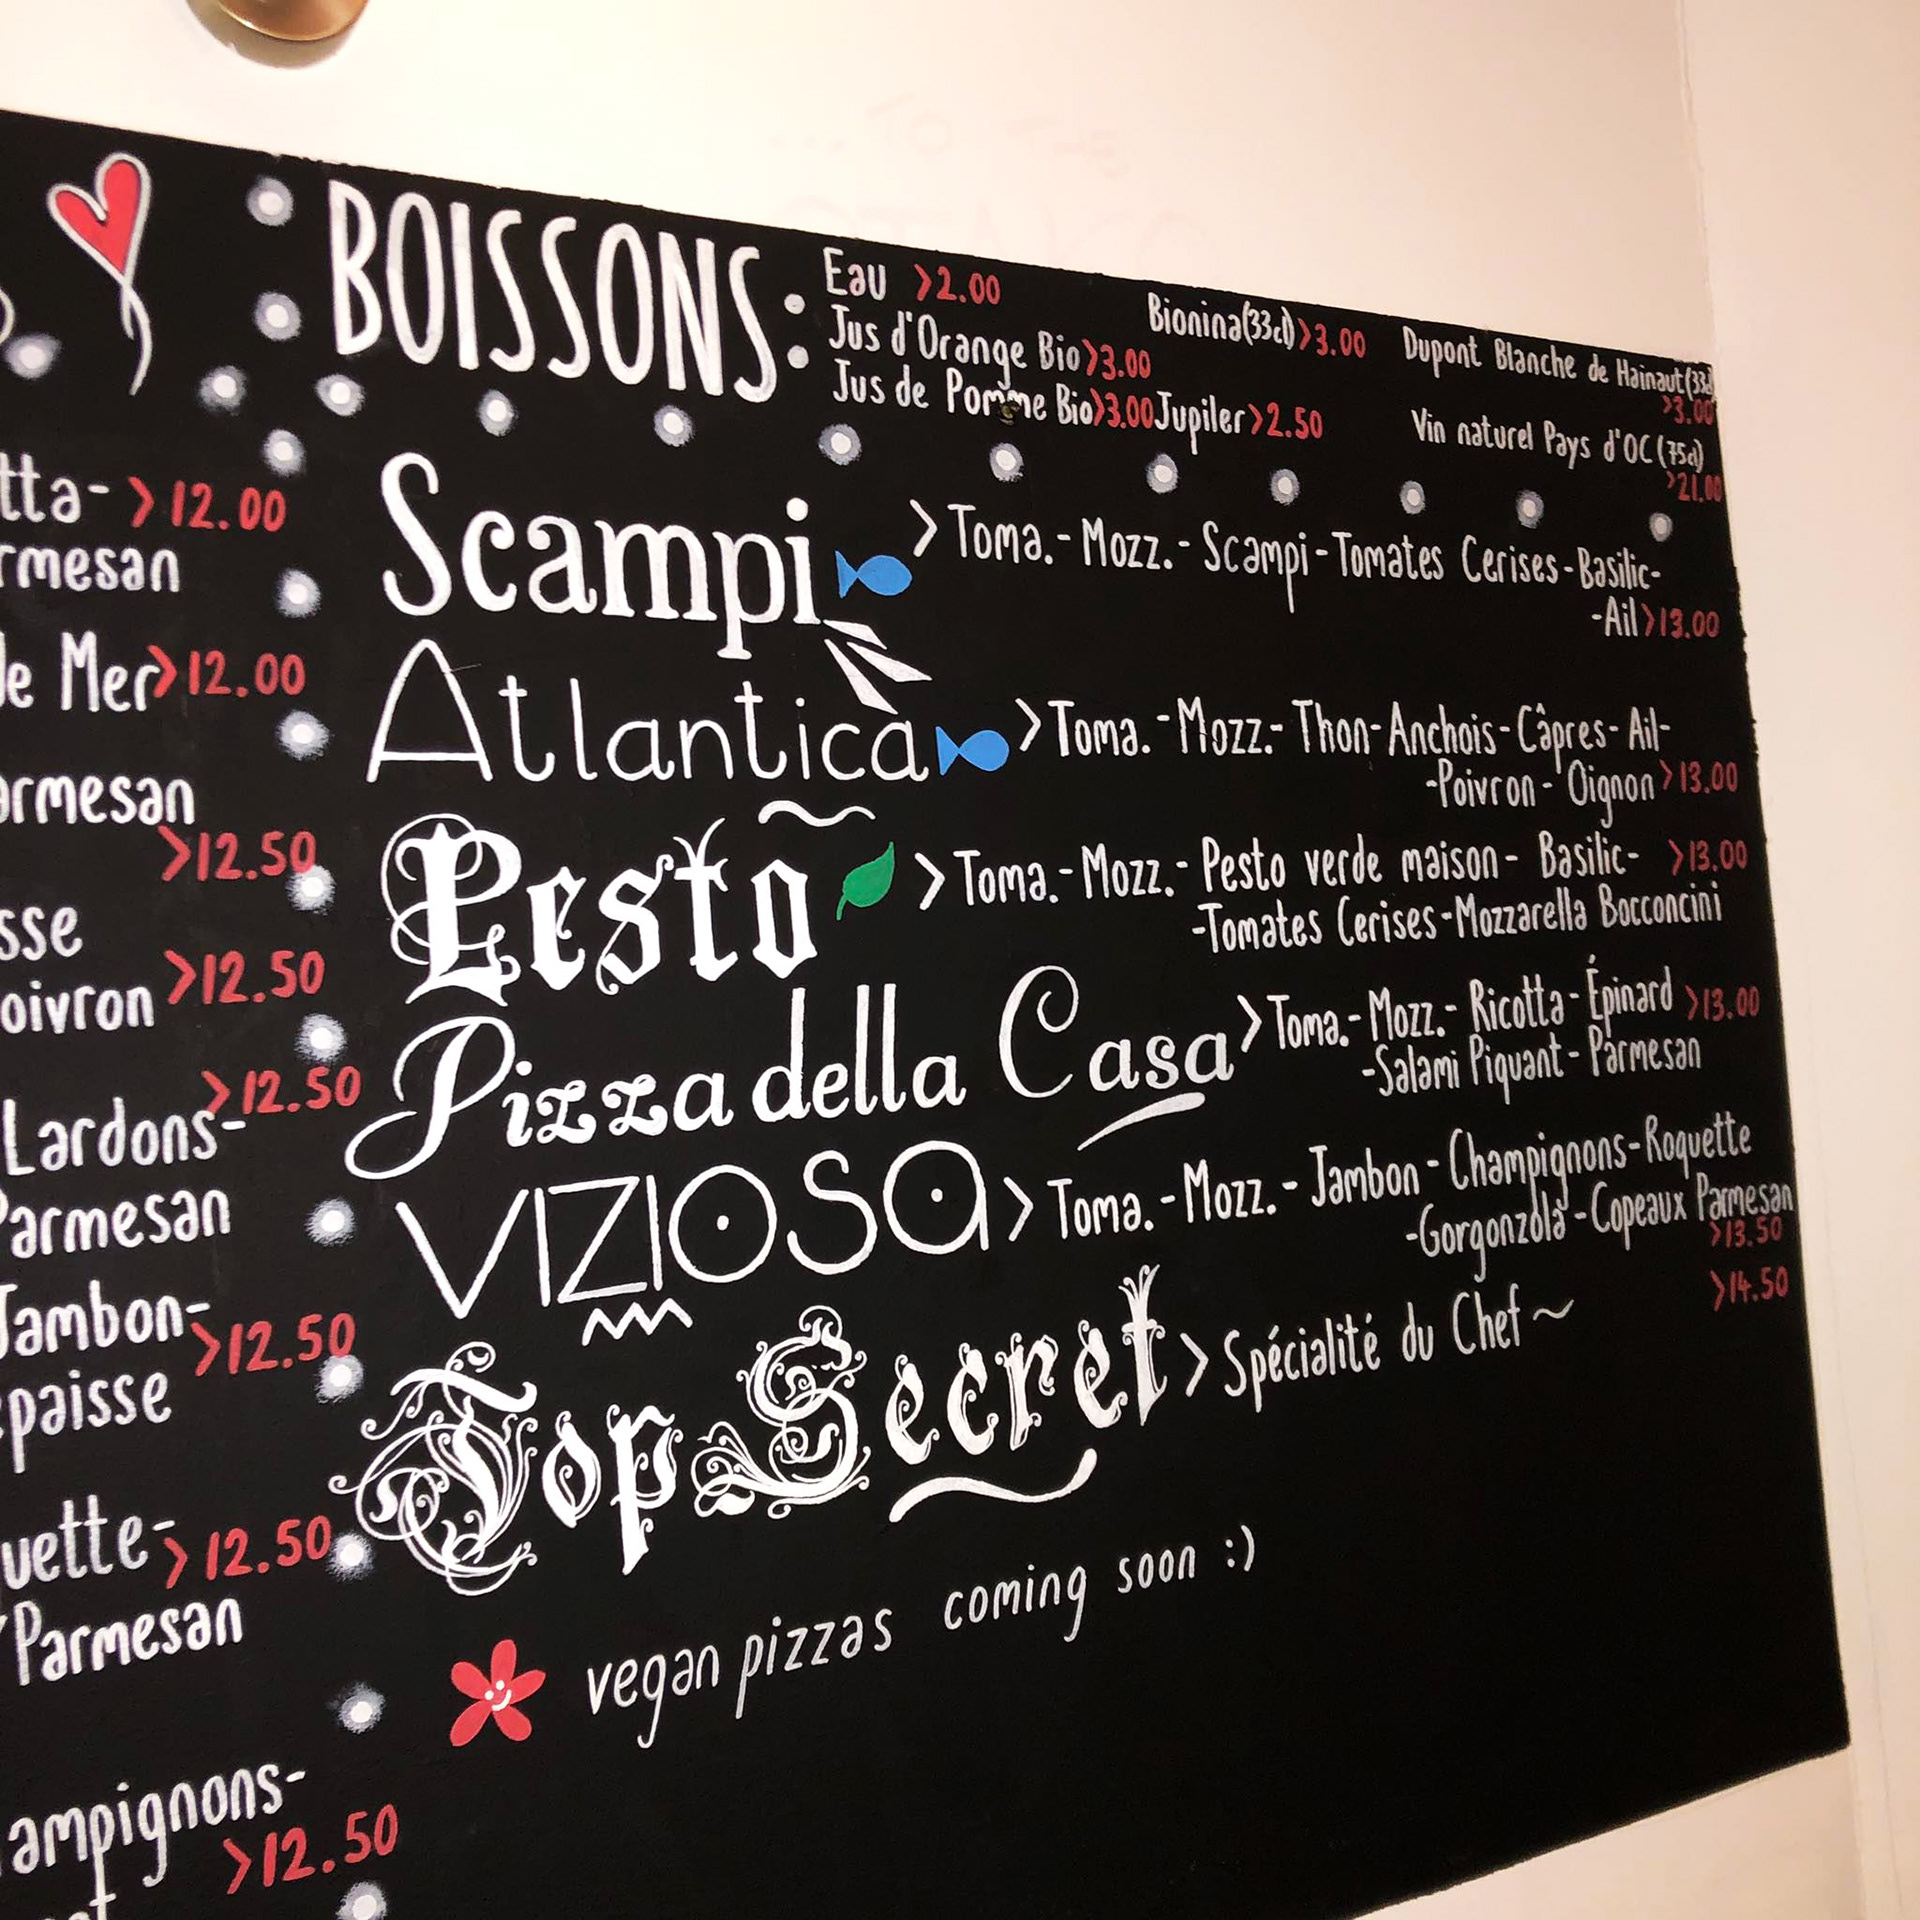 BOISSONS:
Eau >2.00
Jus d'Orange Bio>3.00
Jus de Pomme Bio>3.00
Bionina(33cl)>3.00
Jupiler>2.50
Dupont Blanche de Hainaut(33cl)
>3.00
Vin naturel Pays d'OC(75cl)
>21.00
>12.00
de Mer>12.00
>12.50
>12.50
Lardons->12.50
Parmesan
Jambon->12.50
>12.50
Parmesan
>12.50
Scampi >Toma.-Mozz.-Scampi-Tomates Cerises-Basilic-
-Ail>13.00
Atlantica >Toma.-Mozz.-Thon-Anchois-Câpres-Ail-
-Poivron-Oignon>13.00
Pesto >Toma.-Mozz.-Pesto verde maison-Basilic- >13.00
-Tomates Cerises-Mozzarella Bocconcini
Pizza della Casa>Toma.-Mozz.-Ricotta-Épinard >13.00
-Salami Piquant-Parmesan
VIZIOSa>Toma.-Mozz.-Jambon-Champignons-Roquette
-Gorgonzola-Copeaux Parmesan
>13.50
Top Secret>Spécialité du Chef~ >14.50
vegan pizzas coming soon :)